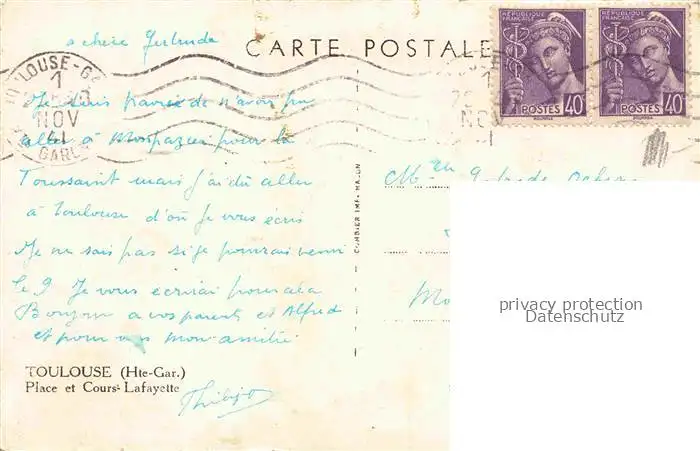 a chère Gertrude
CARTE POSTALE
TOULOUSE-GA
1
NOV
41
GAR
NOV
REPUBLIQUE FRANÇAISE
POSTES 40
REPUBLIQUE FRANÇAISE
POSTES 40
Je suis navrée de n'avoir pu
aller à Monpazier pour la
Toussaint mais j'ai dû aller
à Toulouse d'où je vous écris
Je ne sais pas si je pourrai venir
le 9 Je vous écrirai pour cela
Bonjour a vos parents et Alfred
et pour vous mon amitié
COMBIER IMP. MACON
Mo
privacy protection
Datenschutz
TOULOUSE (Hte-Gar.)
Place et Cours Lafayette